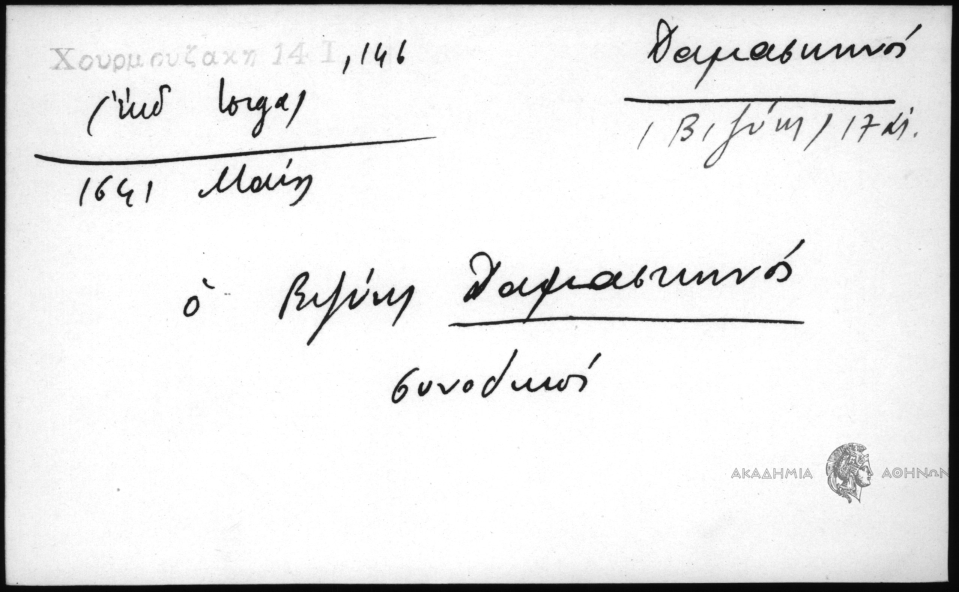 Χουρμουζάκη 14 Ι, 146
(έκδ Ιοργα)
1641 Μαΐῳ
Δαμασκηνός
(Βιζύης) 17 αι.
ὁ Βιζύης Δαμασκηνός
συνοδικῶς
ΑΚΑΔΗΜΙΑ ΑΘΗΝΩΝ